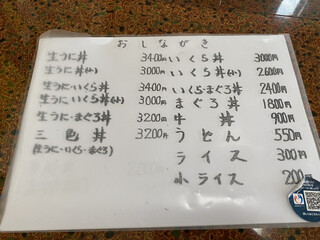 おしながき
生うに丼 3400円
生うに丼(小) 3000円
生うに・いくら丼 3400円
生うにいくら丼(小) 3000円
生うに・まぐろ丼 3200円
三色丼 3200円
(生うに・いくら・まぐろ)
いくら丼 3000円
いくら丼(小) 2600円
いくら・まぐろ丼 2400円
まぐろ丼 1800円
牛丼 900円
うどん 550円
ライス 300円
小ライス 200円